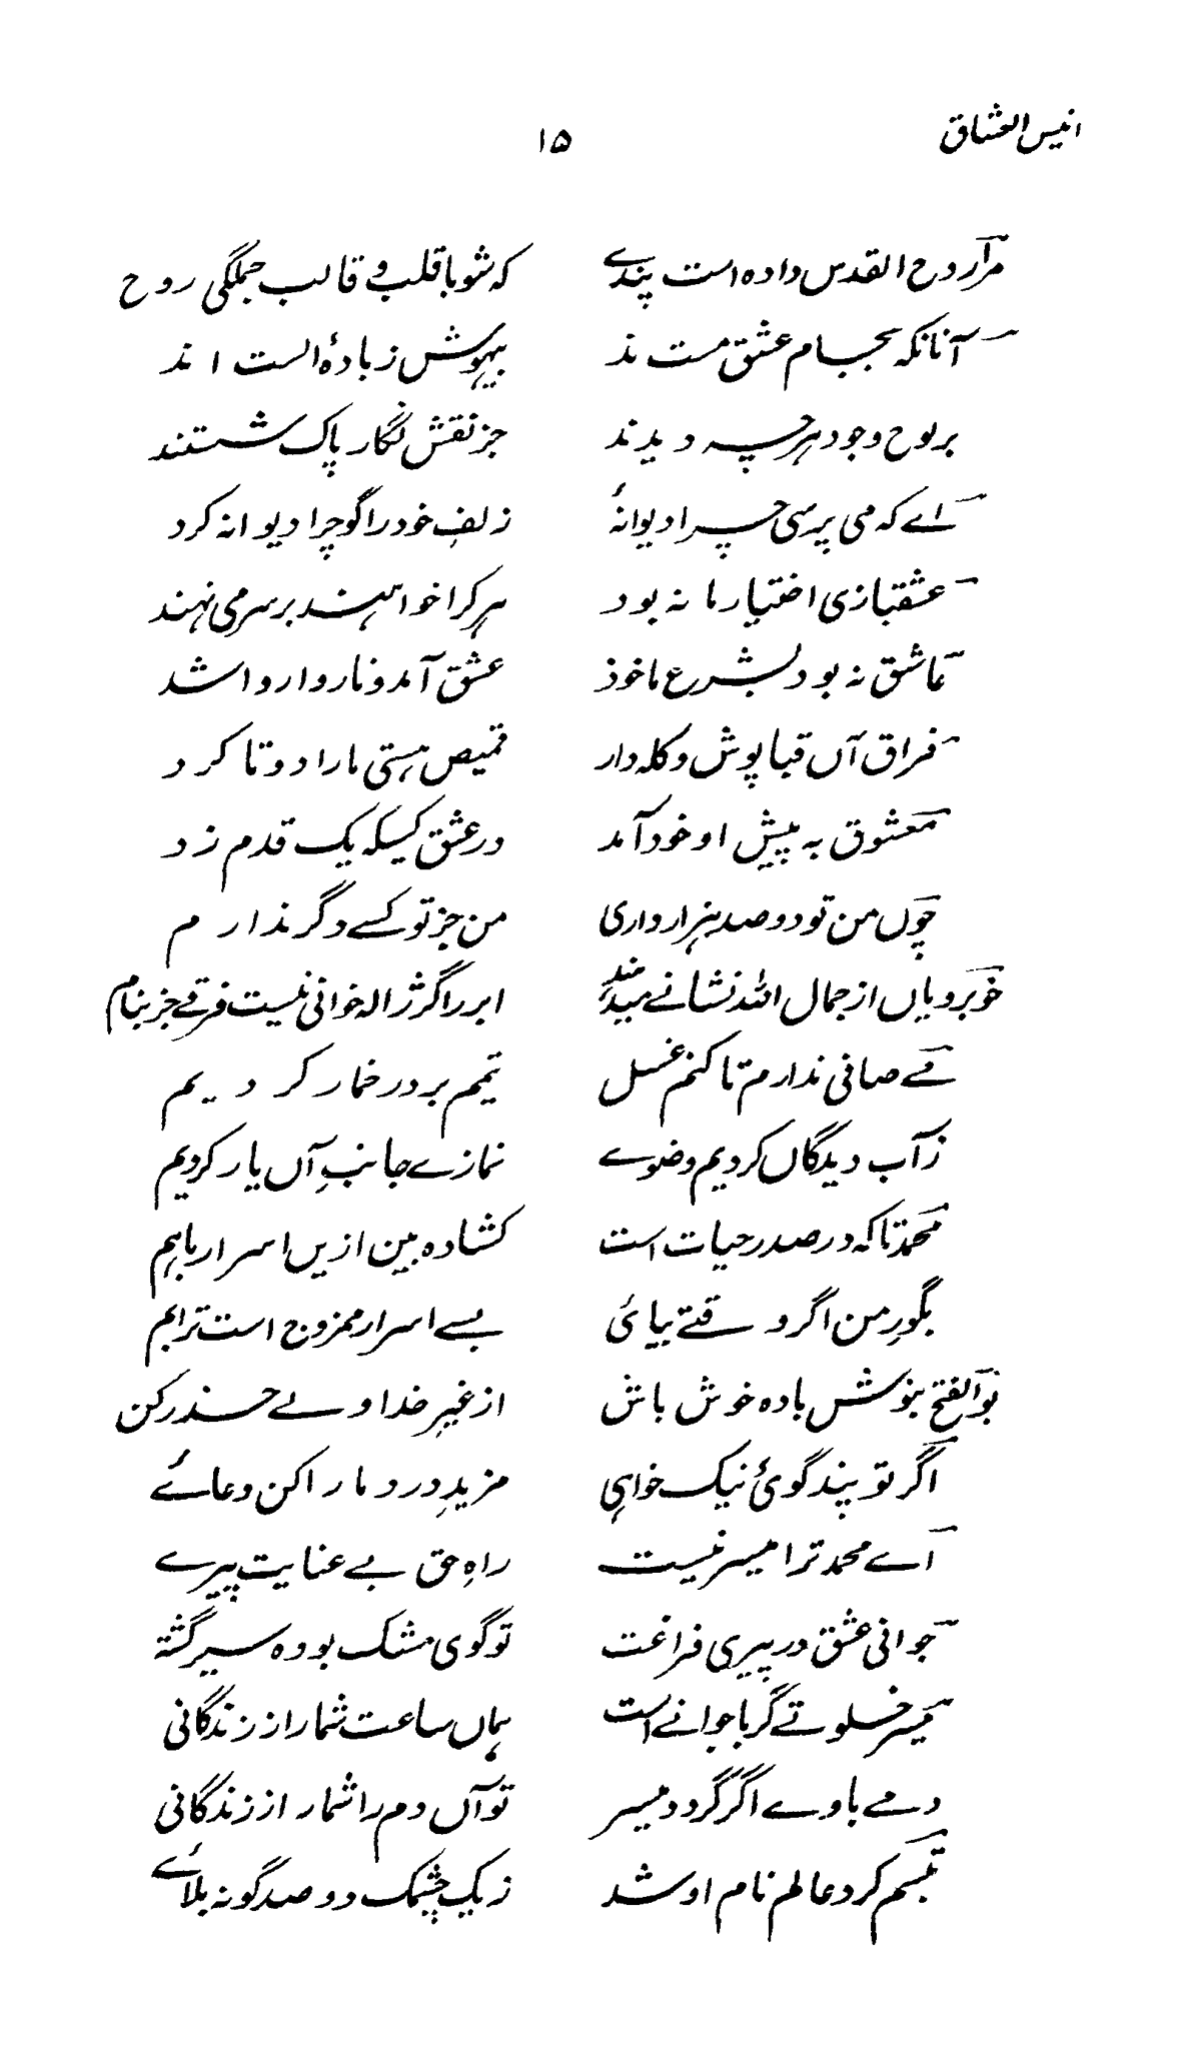 انیس العشاق ۱۵
مرا روح القدس داده است پندے که شو با قلب و قالب جملگی روح
آنانکه بجام عشق مست ند بیہوش ز بادۂ الست اند
بر لوح وجود ہرچہ دیدند جز نقش نگار پاک شستند
اے که می پرسی چرا دیوانۂ زلفِ خود را گو چرا دیوانه کرد
عشقبازی اختیار ما نه بود ہر کرا خواہند بر سر می نہند
عاشق نه بود بشرع ماخوذ عشق آمد و ناروا روا شد
فراق آں قبا پوش و کله دار قمیص ہستی ما را دوتا کرد
معشوق به پیش او خود آمد در عشق کسیکه یک قدم زد
چوں من تو دو صد ہزار داری من جز تو کسے دگر ندارم
خوبرویاں از جمال اللہ نشانے میدہند ابر را گر ژاله خوانی نیست فرقے جز بنام
مے صافی ندارم تا کنم غسل تیمم بر در خمار کردیم
ز آب دیدگاں کردیم وضوے نمازے جانبِ آں یار کردیم
محمد تا که در صدر حیات است کشاده بین ازیں اسرار باہم
بگورِ من اگر وقتے بیائی بسے اسرار ممزوج است ترابم
بو الفتح بنوش باده خوش باش از غیرِ خدا ولے حذر کن
اگر تو پند گوئ نیک خواہی مزیدِ درد ما را کن دعائے
اے محمد ترا میسر نیست راهِ حق بے عنایت پیرے
جوانی عشق در پیری فراغت تو گوی مشک بوده سیر گشتہ
میسر خلوتے گر با جوانے است ہماں ساعت شمار از زندگانی
دمے باوے اگر گردد میسر تو آں دم را شمار از زندگانی
تبسم کرد عالم نام او شد ز یک چشمک دو صد گونه بلائے